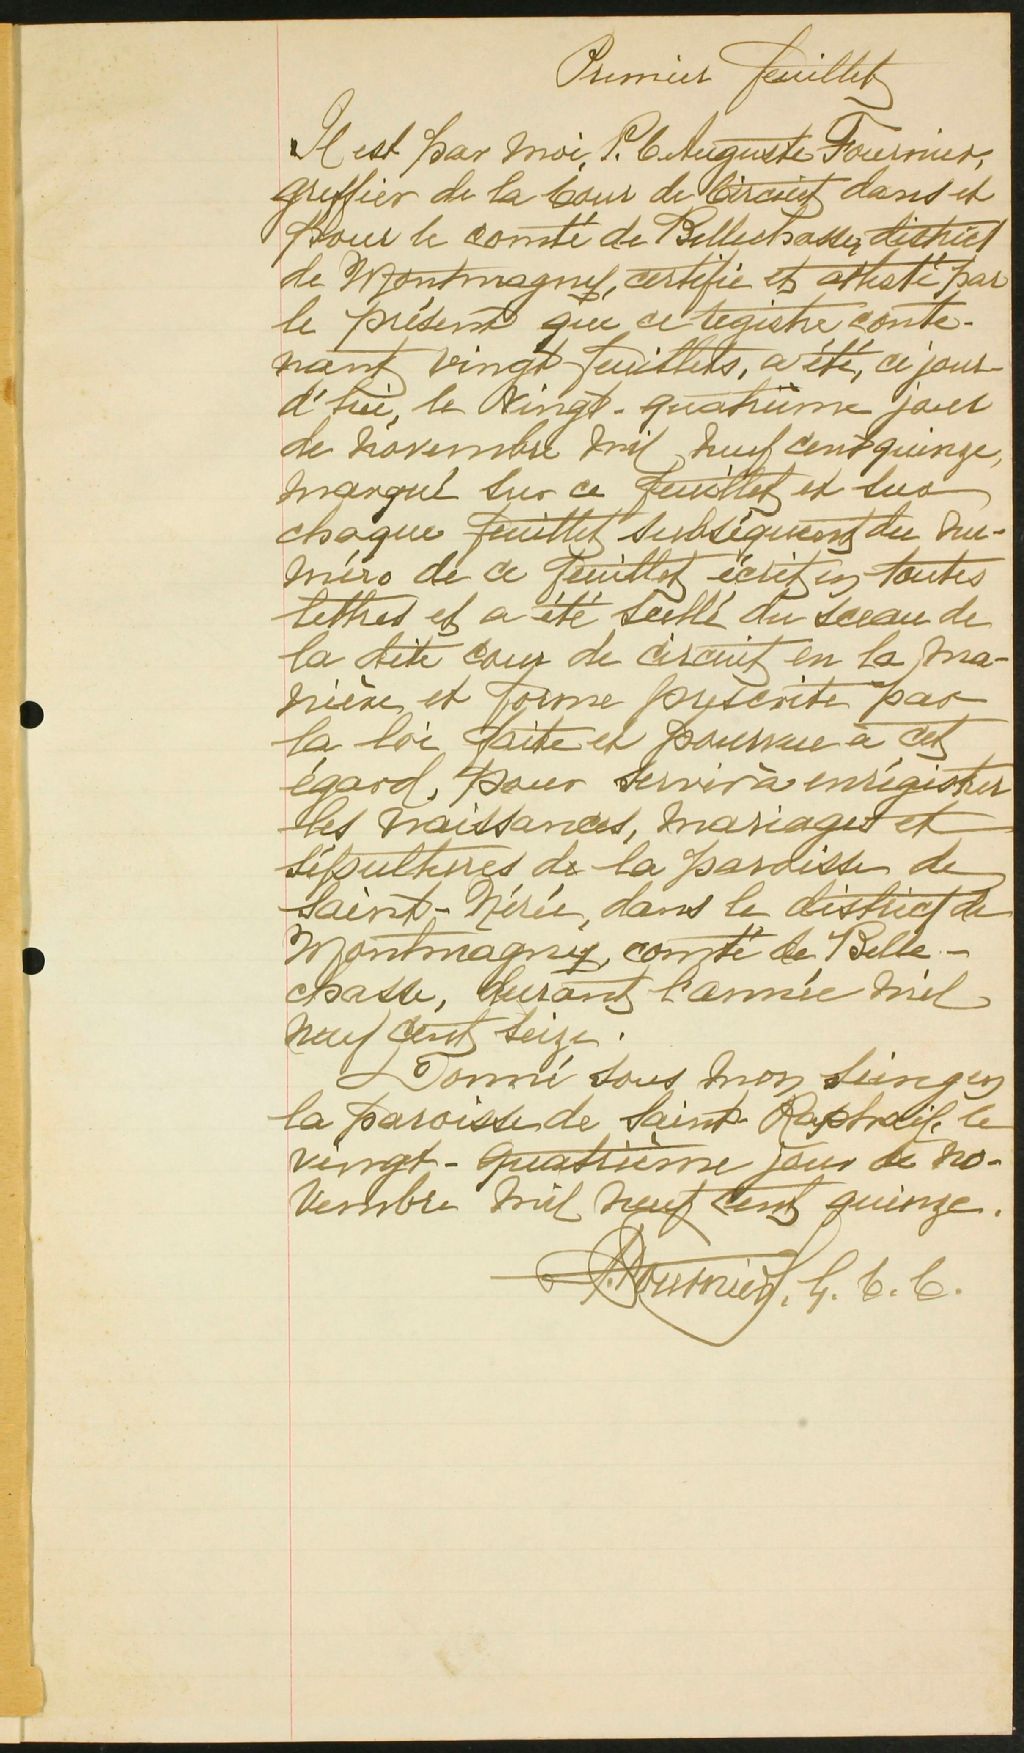 Premier feuillet
Il est par moi, P. C. Auguste Fournier,
greffier de la Cour de Circuit dans et
pour le comté de Bellechasse, district
de Montmagny, certifié et attesté par
le présent que ce registre conte-
nant vingt feuillets, a été, ce jour-
d'hui, le vingt-quatrième jour
de novembre mil neuf cent quinze,
marqué sur ce feuillet et sur
chaque feuillet subséquent du nu-
méro de ce feuillet écrit en toutes
lettres et a été scellé du sceau de
la dite cour de circuit en la ma-
nière et forme prescrite par
la loi faite et pourvue à cet
égard, pour servir à enrégistrer
les naissances, mariages et
sépultures de la paroisse de
Saint-Nérée, dans le district de
Montmagny, comté de Belle-
chasse, durant l'année mil
neuf cent seize.
Donné sous mon seing en
la paroisse de Saint Raphaël, le
vingt-quatrième jour de no-
vembre mil neuf cent quinze.
Fournier, G. C. C.